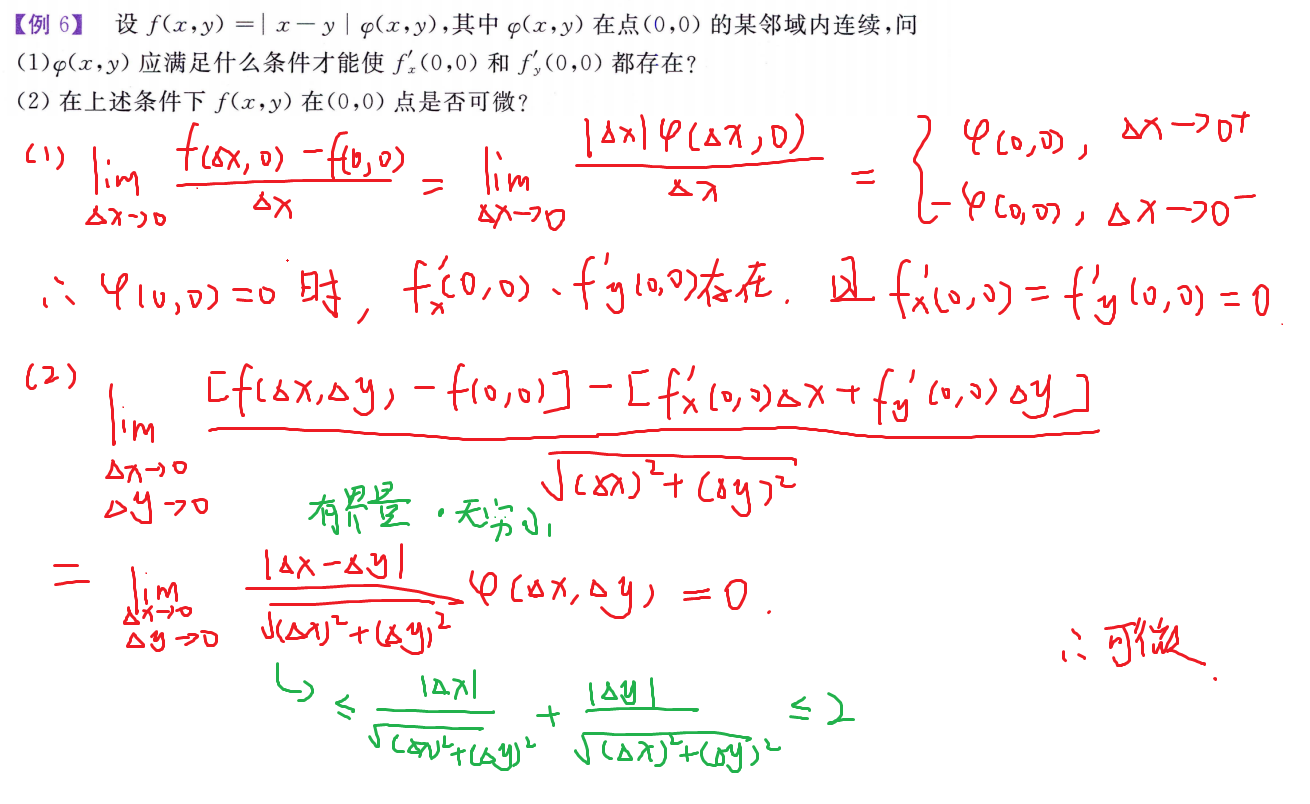 【例 6】 设 f(x,y)=|x-y|φ(x,y),其中 φ(x,y) 在点(0,0) 的某邻域内连续,问
(1)φ(x,y) 应满足什么条件才能使 f′ₓ(0,0) 和 f′ᵧ(0,0) 都存在?
(2) 在上述条件下 f(x,y) 在(0,0) 点是否可微?
(1) lim_{Δx→0} \frac{f(Δx,0)-f(0,0)}{Δx} = lim_{Δx→0} \frac{|Δx|φ(Δx,0)}{Δx} = { φ(0,0), Δx→0⁺
-φ(0,0), Δx→0⁻
∴ φ(0,0)=0 时, f′ₓ(0,0)、f′ᵧ(0,0)存在. 且 f′ₓ(0,0)=f′ᵧ(0,0)=0.
(2) lim_{Δx→0 Δy→0} \frac{[f(Δx,Δy)-f(0,0)]-[f′ₓ(0,0)Δx+fᵧ′(0,0)Δy]}{\sqrt{(Δx)²+(Δy)²}}
有界量·无穷小
= lim_{Δx→0 Δy→0} \frac{|Δx-Δy|}{\sqrt{(Δx)²+(Δy)²}} φ(Δx,Δy) = 0.
∴ 可微.
↳ ≤ \frac{|Δx|}{\sqrt{(Δx)²+(Δy)²}} + \frac{|Δy|}{\sqrt{(Δx)²+(Δy)²}} ≤ 2